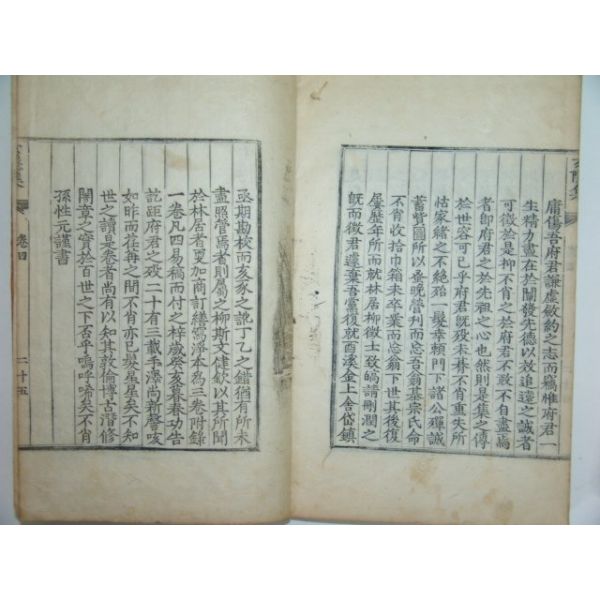 庸傷吾府君謙虛斂約之志而竊惟府君一
生精力盡在於闡發先德以效追遠之誠者
可徵於是柳不肖之於府君不敢不自盡焉
者卽府君之於先祖之心也然則是集之傳
於世容可已乎府君旣歿未朞不肖重失所
怙家緖之不絶殆一髮幸賴門下諸公殫誠
蓄訾圖所以亟晩營刊而忘吾翁基宗氏命
不肖收拾巾箱未卒業而忘翁下世其後復
屢歷年所而就林居柳徵士致皜請刪潤之
旣而徵君遽棄吾黨復就酉溪金上舍岱鎭
亟期勘校而亥豕之訛丁乙之錯猶有所未
盡照管焉者則屬之柳斯文建欽以其所聞
於林居者更加商訂繕寫淨本爲三卷附錄
一卷凡四易稿而付之梓歲癸亥暮春功告
訖距府君之歿二十有三載手澤尚新謦咳
如昨而荏苒之間不肖亦已髮星星矣不知
世之讀是卷者尚有以知其敦倫博古潛修
闇章之實於百世之下否乎嗚呼希矣不肖
孫性元謹書
卷四
二十五